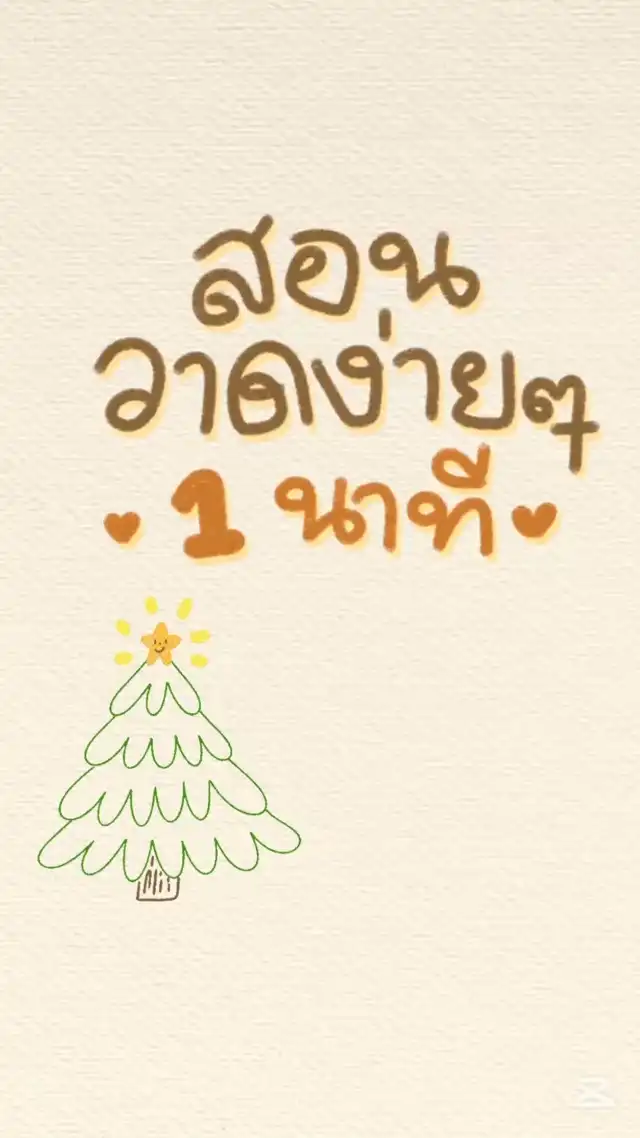 สอน
วาดง่ายๆ
1 นาที